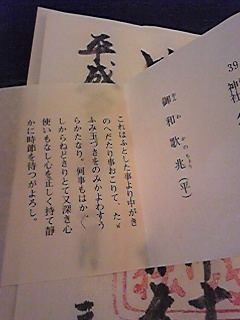 39
神社
御和歌兆(平)
これはふとした事より中がき
のへだたり事おこりて、たゞ
ふみ玉づさをのみかよわすう
らかたなり。何事もはか〲
しからねどさりとて又深き心
使いもなし心を正しく持て静
かに時節を待つがよろし。
平成